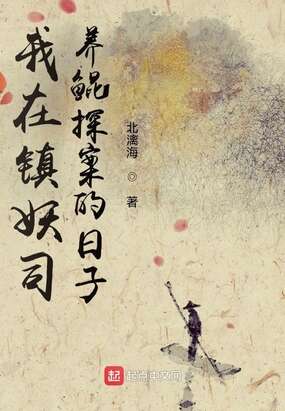 我在镇妖司
养鲲探案的日子
北漓海◎著
起 起点中文网